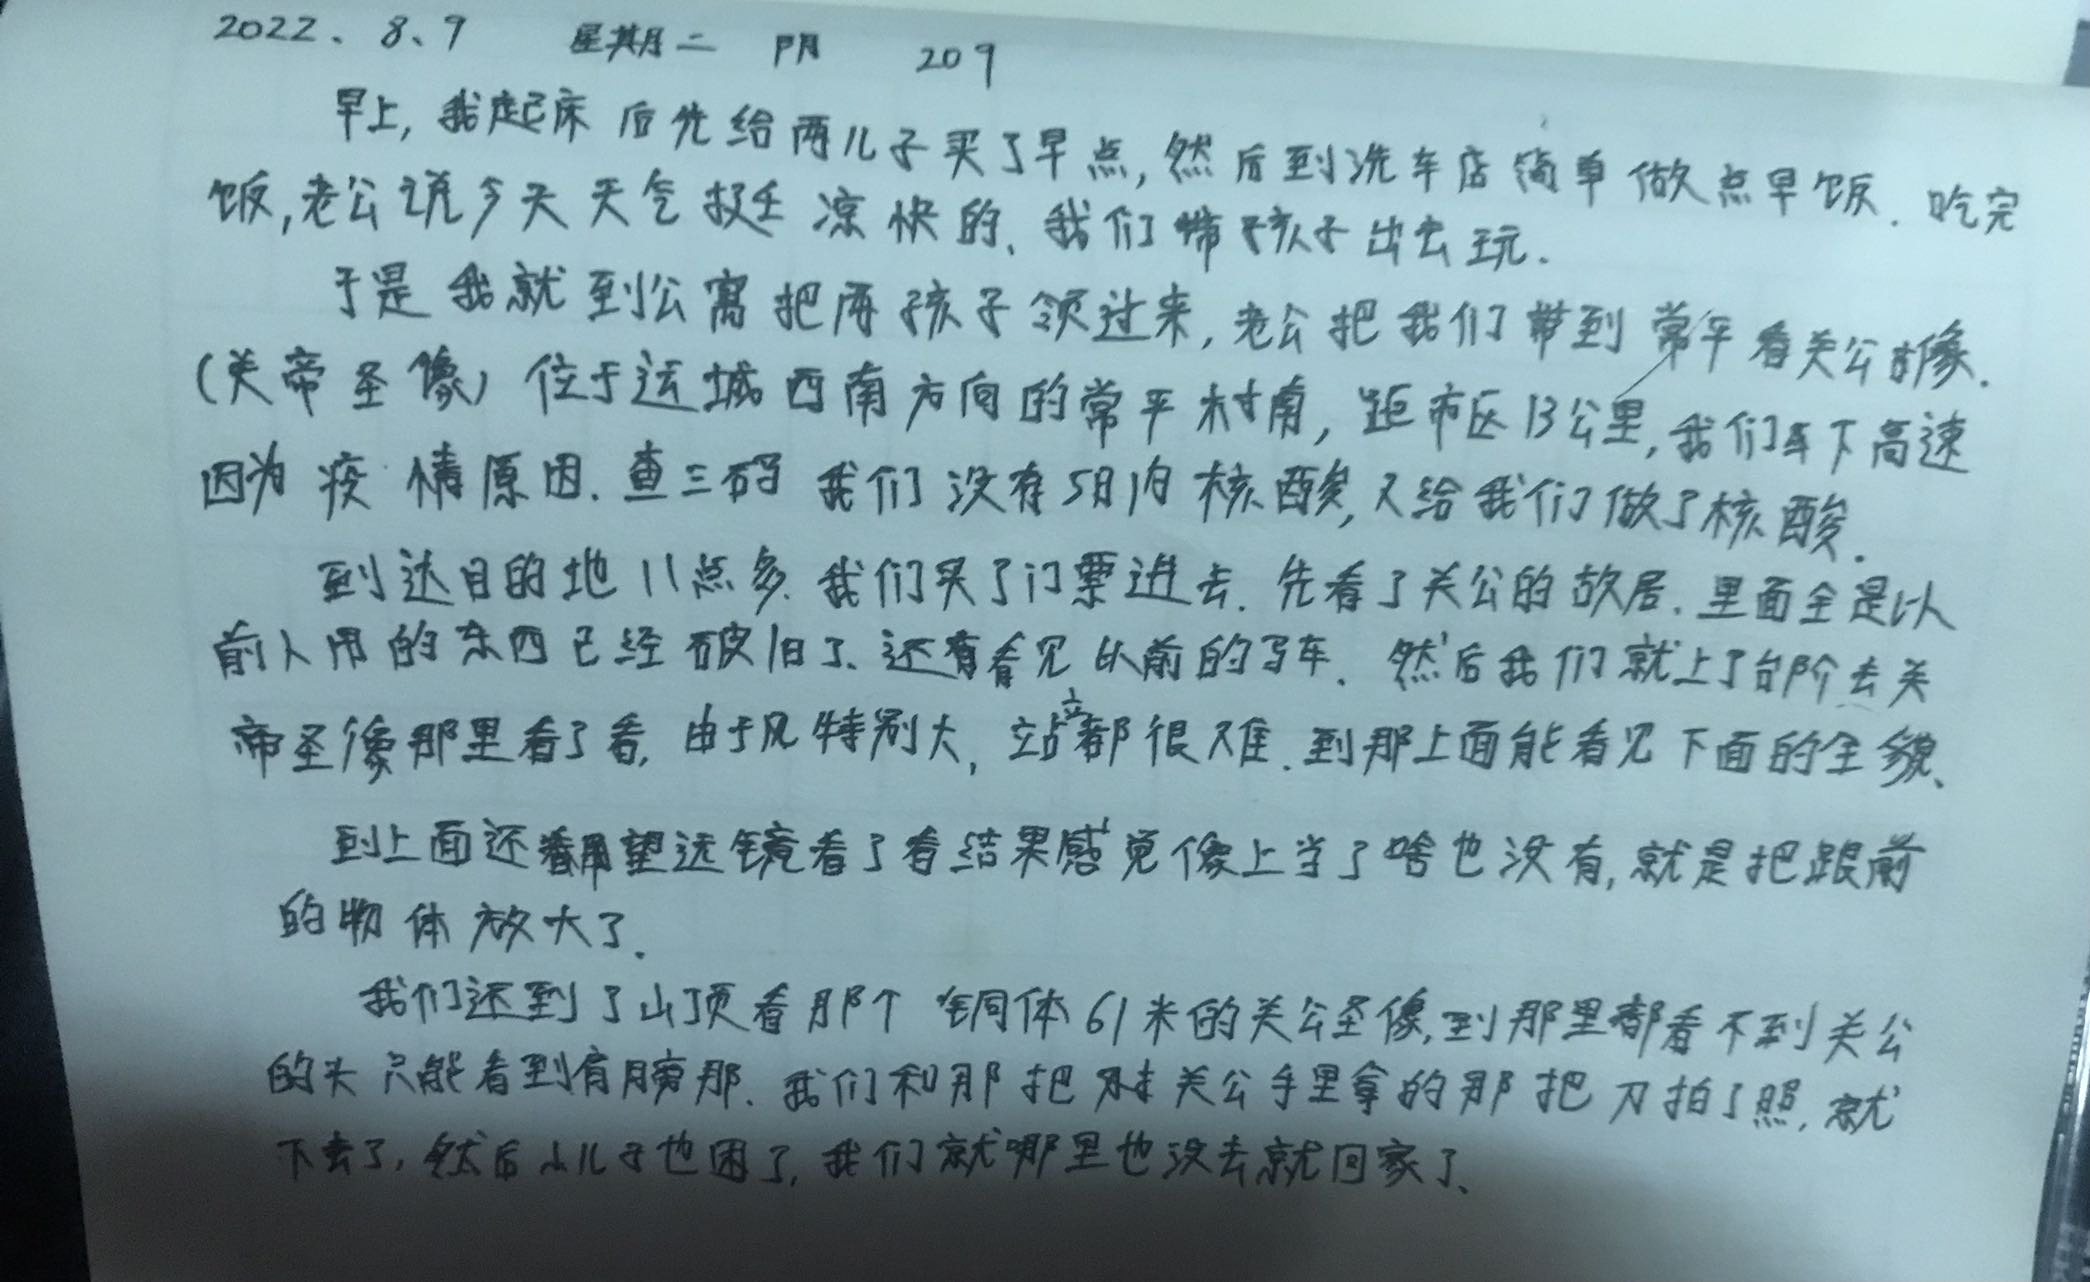 2022、8、9 星期二 阴 209
早上,我起床后先给两儿子买了早点,然后到洗车店简单做点早饭.吃完
饭,老公说今天天气挺凉快的、我们带孩子出去玩.
于是我就到公寓把两孩子领过来,老公把我们带到常平看关公像.
(关帝圣像)位于运城西南方向的常平村南,距市区13公里,我们车下高速
因为疫情原因.查三码我们没有5日内核酸,又给我们做了核酸.
到达目的地11点多.我们买了门票进去.先看了关公的故居.里面全是以
前人用的东西已经破旧了、还有看见以前的马车.然后我们就上了台阶去关
帝圣像那里看了看,由于风特别大,站立都很难.到那上面能看见下面的全貌、
到上面还用望远镜看了看结果感觉像上当了啥也没有,就是把跟前
的物体放大了.
我们还到了山顶看那个铜体61米的关公圣像,到那里都看不到关公
的头只能看到肩膀那.我们和那把关公手里拿的那把刀拍了照,就
下去了,然后小儿子也困了,我们就哪里也没去就回家了、